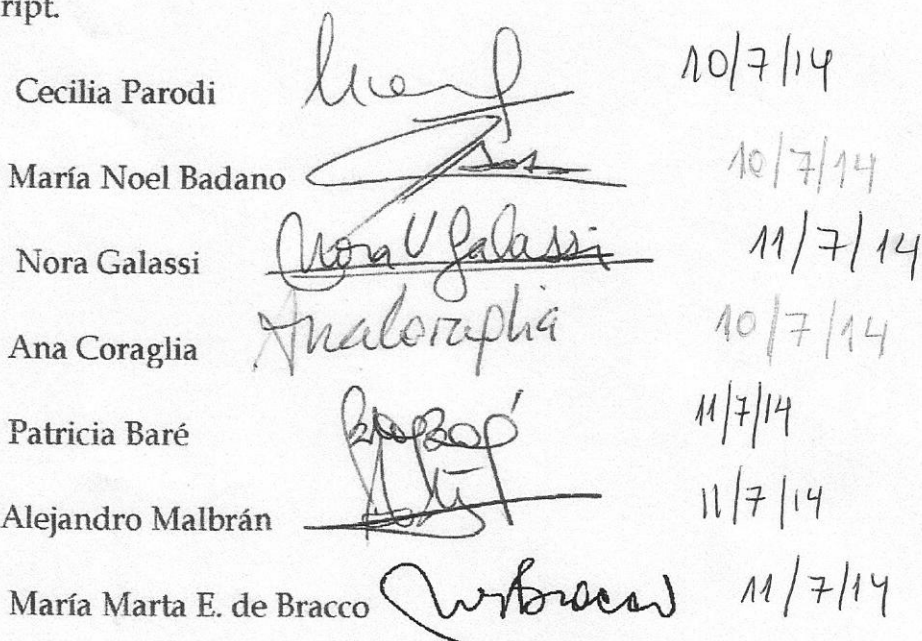 ript.
Cecilia Parodi 10/7/14
María Noel Badano 10/7/14
Nora Galassi Nora V Galassi 11/7/14
Ana Coraglia AnaCoraglia 10/7/14
Patricia Baré 11/7/14
Alejandro Malbrán 11/7/14
María Marta E. de Bracco 11/7/14